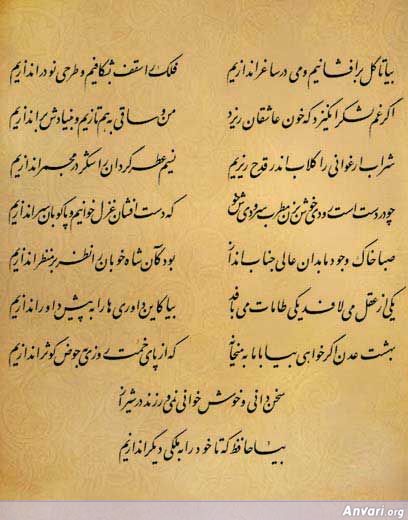 بیا تا گل برافشانیم و می در ساغر اندازیم فلک را سقف بشکافیم و طرحی نو دراندازیم
اگر غم لشکر انگیزد که خون عاشقان ریزد من و ساقی بهم تازیم و بنیادش براندازیم
شراب ارغوانی را گلاب اندر قدح ریزیم نسیم عطر گردان را شکر در مجمر اندازیم
چو در دست است رودی خوش بزن مطرب سرودی خوش که دست افشان غزل خوانیم و پاکوبان سر اندازیم
صبا خاک وجود ما بدان عالی جناب انداز بود کان شاه خوبان را نظر بر منظر اندازیم
یکی از عقل می لافد یکی طامات می بافد بیا کاین داوری ها را به پیش داور اندازیم
بهشت عدن اگر خواهی بیا با ما به میخانه که از پای خمت روزی به حوض کوثر اندازیم
سخن دانی و خوش خوانی نمی ورزند در شیراز
بیا حافظ که تا خود را به ملکی دیگر اندازیم
Anvari.org